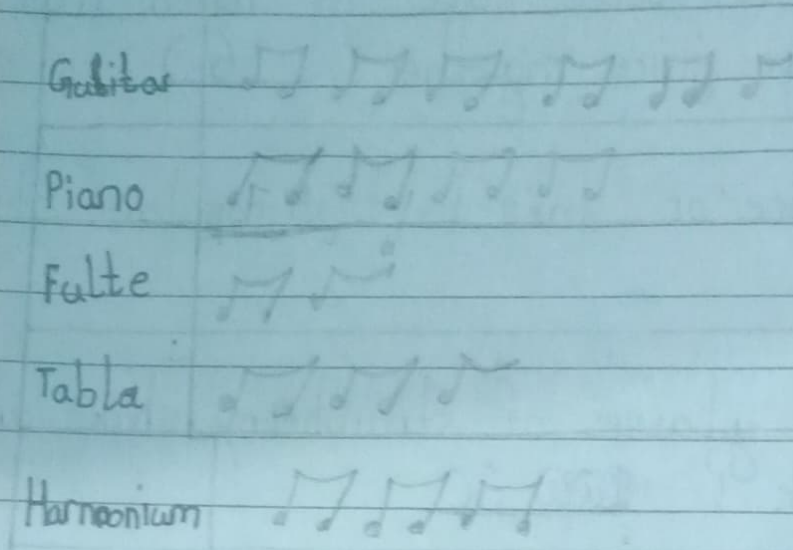 Guitar
Piano
Fulte
Tabla
Harmonium